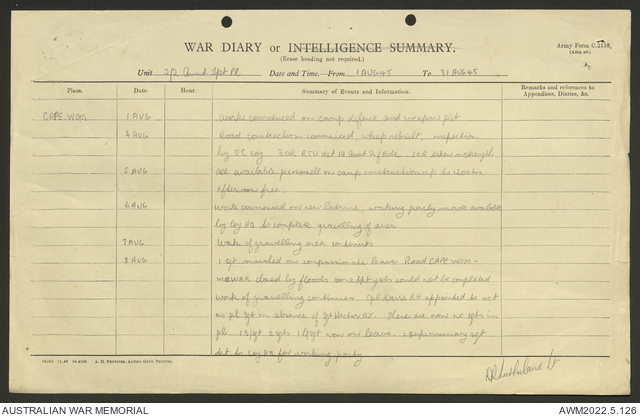 WAR DIARY or INTELLIGENCE SUMMARY.
(Erase heading not required.)
Army Form C.2118.
Unit 2/2 Aust Tpt Pl Date and Time.—From 1 AUG 45 To 31 AUG 45
Place. Date. Hour. Summary of Events and Information. Remarks and references to Appendices, Diaries, &c.
CAPE WOM 1 AUG Works commenced on camp defence and weapon pit
4 AUG Road construction commenced, inspection
by OC Coy. 3OR RTU det 10 Aust 1OR taken on strength
5 AUG All available personell on camp construction up to 1200 hrs
afternoon free.
6 AUG Work commenced on new latrine, working party made available
by Coy HQ to complete gravelling of area
7 AUG Work of gravelling area continues
8 AUG 1 Sgt marched on compassionate leave Road CAPE WOM -
WEWAK closed by floods some tpt jobs could not be completed
Work of gravelling continues. Cpl Davis RH appointed to act
as pl sgt in absence of Sgt There are now no sgts in
pl. 1 S/Sgt 2 sgts 1 L/Sgt now on leave. 1 supernumary sgt
det to Coy HQ for working party
A. H. Pettifer, Acting Govt. Printer.
Sutherland Lt
AUSTRALIAN WAR MEMORIAL
AWM2022.5.126